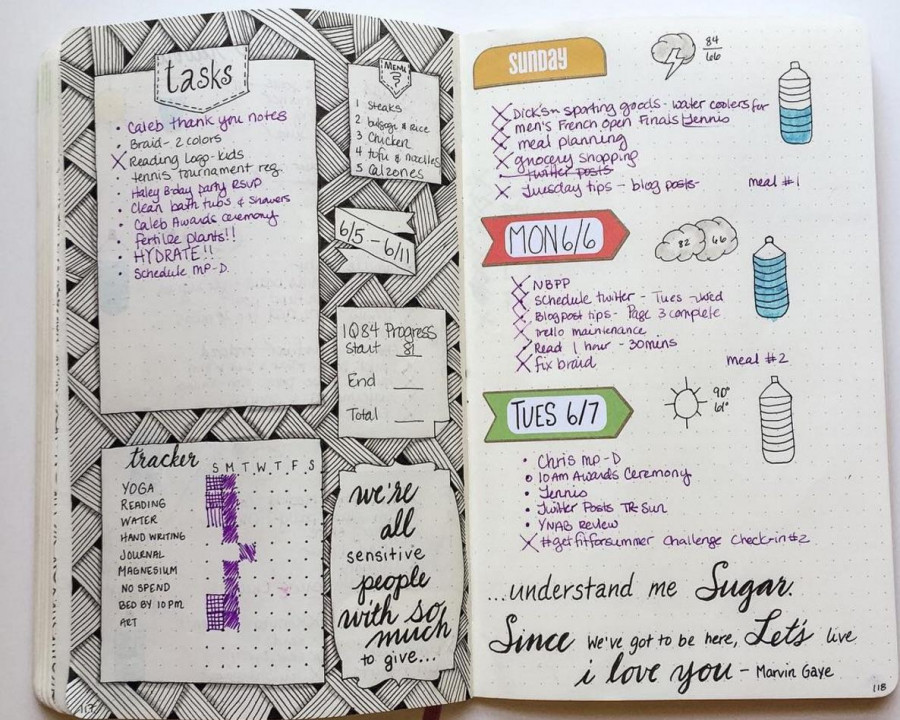 tasks
• Caleb thank you notes
• Braid - 2 colors
X Reading Logo - kids
tennis tournament reg.
• Haley B-day party RSVP
• Clean bath tubs & showers
• Caleb Awards Ceremony
• fertilize plants!!
• HYDRATE!!
• Schedule MP-D.
MENU
1 Steaks
2 bulgogi & rice
3 Chicken
4 tofu & noodles
5 Calzones
6/5 - 6/11
1Q84 Progress
Start 81
End
Total
tracker
S M T W T F S
YOGA
READING
WATER
HAND WRITING
JOURNAL
MAGNESIUM
NO SPEND
BED BY 10 PM
ART
we're
all
sensitive
people
with so
much
to give...
117
SUNDAY
84
66
X Dick's sporting goods - water coolers for
X men's French Open Finals tennis
X meal planning
X grocery shopping
twitter posts
X Tuesday tips - blog posts
meal #1
MON 6/6
82 66
X NBPP
X Schedule twitter - Tues - Wed
X Blog post tips - Page 3 complete
X trello maintenance
X Read 1 hour - 30mins
X fix braid
meal #2
TUES 6/7
90°
61°
• Chris MP-D
• 10 AM Awards Ceremony
• Tennis
• Twitter Posts TR-Sun
• YNAB Review
X #getfitforsummer Challenge Check-in #2
...understand me Sugar.
Since we've got to be here, Let's live
i love you - Marvin Gaye
118